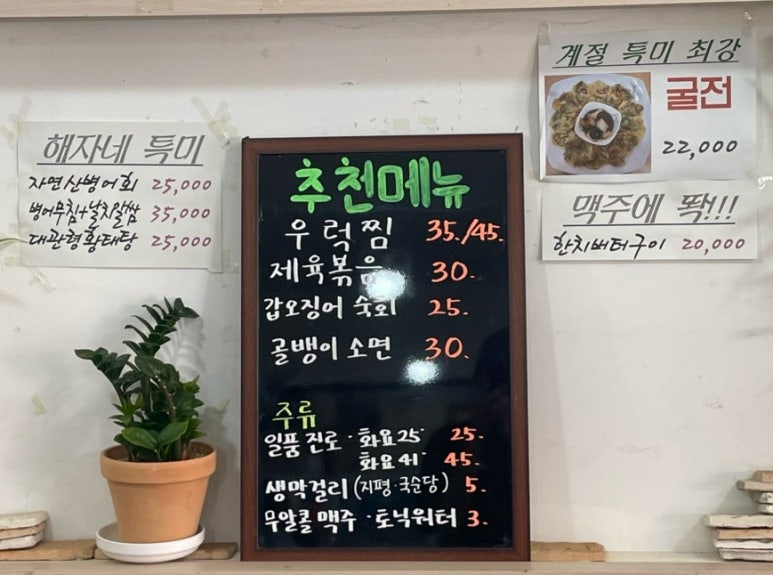 해자네 특미
자연산병어회 25,000
병어무침+날치알쌈 35,000
대관형황태탕 25,000
추천메뉴
우럭찜 35./45.
제육볶음 30.
갑오징어 숙회 25.
골뱅이 소면 30.
주류
일품진로 · 화요25° 25.
화요41° 45.
생막걸리 (지평·국순당) 5.
무알콜 맥주 · 토닉워터 3.
계절 특미 최강
굴전
22,000
맥주에 똭!!!
한치버터구이 20,000